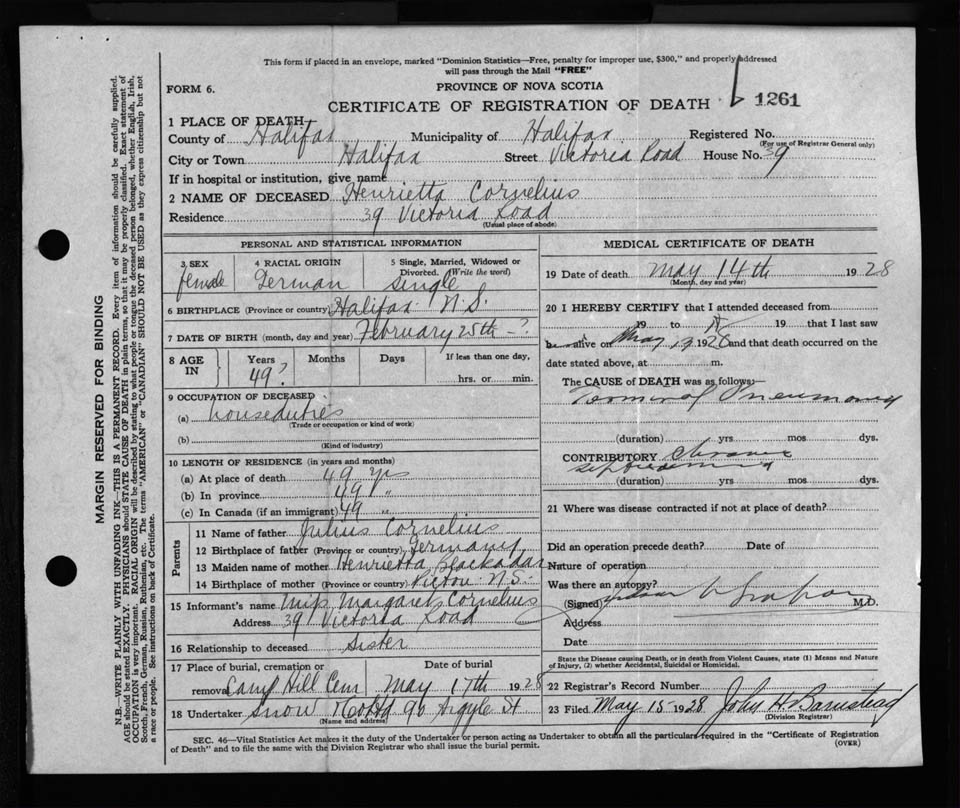 This form if placed in an envelope, marked "Dominion Statistics—Free, penalty for improper use, $300," and properly addressed
will pass through the Mail "FREE"
FORM 6.
PROVINCE OF NOVA SCOTIA
CERTIFICATE OF REGISTRATION OF DEATH 1261
1 PLACE OF DEATH
County of Halifax Municipality of Halifax Registered No.
(For use of Registrar General only)
City or Town Halifax Street Victoria Road House No. 39
If in hospital or institution, give name
2 NAME OF DECEASED Henrietta Cornelius
Residence 39 Victoria Road
(Usual place of abode)
PERSONAL AND STATISTICAL INFORMATION
3 SEX 4 RACIAL ORIGIN 5 Single, Married, Widowed or
Divorced. (Write the word)
female German single
6 BIRTHPLACE (Province or country) Halifax N.S.
7 DATE OF BIRTH (month, day and year) February 25th - ?
8 AGE IN Years Months Days If less than one day,
49? hrs. or min.
9 OCCUPATION OF DECEASED
(a) houseduties
(Trade or occupation or kind of work)
(b)
(Kind of industry)
10 LENGTH OF RESIDENCE (in years and months)
(a) At place of death 49 yrs
(b) In province 49 "
(c) In Canada (if an immigrant) 49 "
Parents
11 Name of father Julius Cornelius
12 Birthplace of father (Province or country) Germany
13 Maiden name of mother Henrietta Blackadar
14 Birthplace of mother (Province or country) Pictou - N.S.
15 Informant's name Miss Margaret Cornelius
Address 39 Victoria Road
16 Relationship to deceased Sister
17 Place of burial, cremation or Date of burial
removal Camp Hill Cem May 17th 1928
18 Undertaker Snow & Co Ltd 90 Argyle St
(Name and address)
MEDICAL CERTIFICATE OF DEATH
19 Date of death May 14th 1928
(Month, day and year)
20 I HEREBY CERTIFY that I attended deceased from
19 to 19 that I last saw
alive on May 1928 and that death occurred on the
date stated above, at m.
The CAUSE of DEATH was as follows:—
Terminal Pneumonia
(duration) yrs mos dys.
CONTRIBUTORY Chronic
(duration) yrs. mos. dys.
21 Where was disease contracted if not at place of death?
Did an operation precede death? Date of
Nature of operation
Was there an autopsy?
(Signed) Graham M.D.
Address
Date
State the Disease causing Death, or in death from Violent Causes, state (1) Means and Nature
of Injury, (2) whether Accidental, Suicidal or Homicidal.
22 Registrar's Record Number
23 Filed May 15 1928 John H Barnstead
(Division Registrar)
SEC. 46—Vital Statistics Act makes it the duty of the Undertaker or person acting as Undertaker to obtain all the particulars required in the "Certificate of Registration
of Death" and to file the same with the Division Registrar who shall issue the burial permit.
(OVER)
MARGIN RESERVED FOR BINDING
N.B.—WRITE PLAINLY WITH UNFADING INK—THIS IS A PERMANENT RECORD. Every item of information should be carefully supplied.
AGE should be stated EXACTLY. PHYSICIANS should STATE CAUSE OF DEATH in plain terms, so that it may be properly classified. Exact statement of
OCCUPATION is very important. RACIAL ORIGIN will be described by stating to what people or tongue the deceased person belonged, whether English, Irish,
Scotch, French, German, Russian, Ruthenian, etc. The terms "AMERICAN" or "CANADIAN" SHOULD NOT BE USED as they express citizenship but not
a race or people. See instructions on back of Certificate.